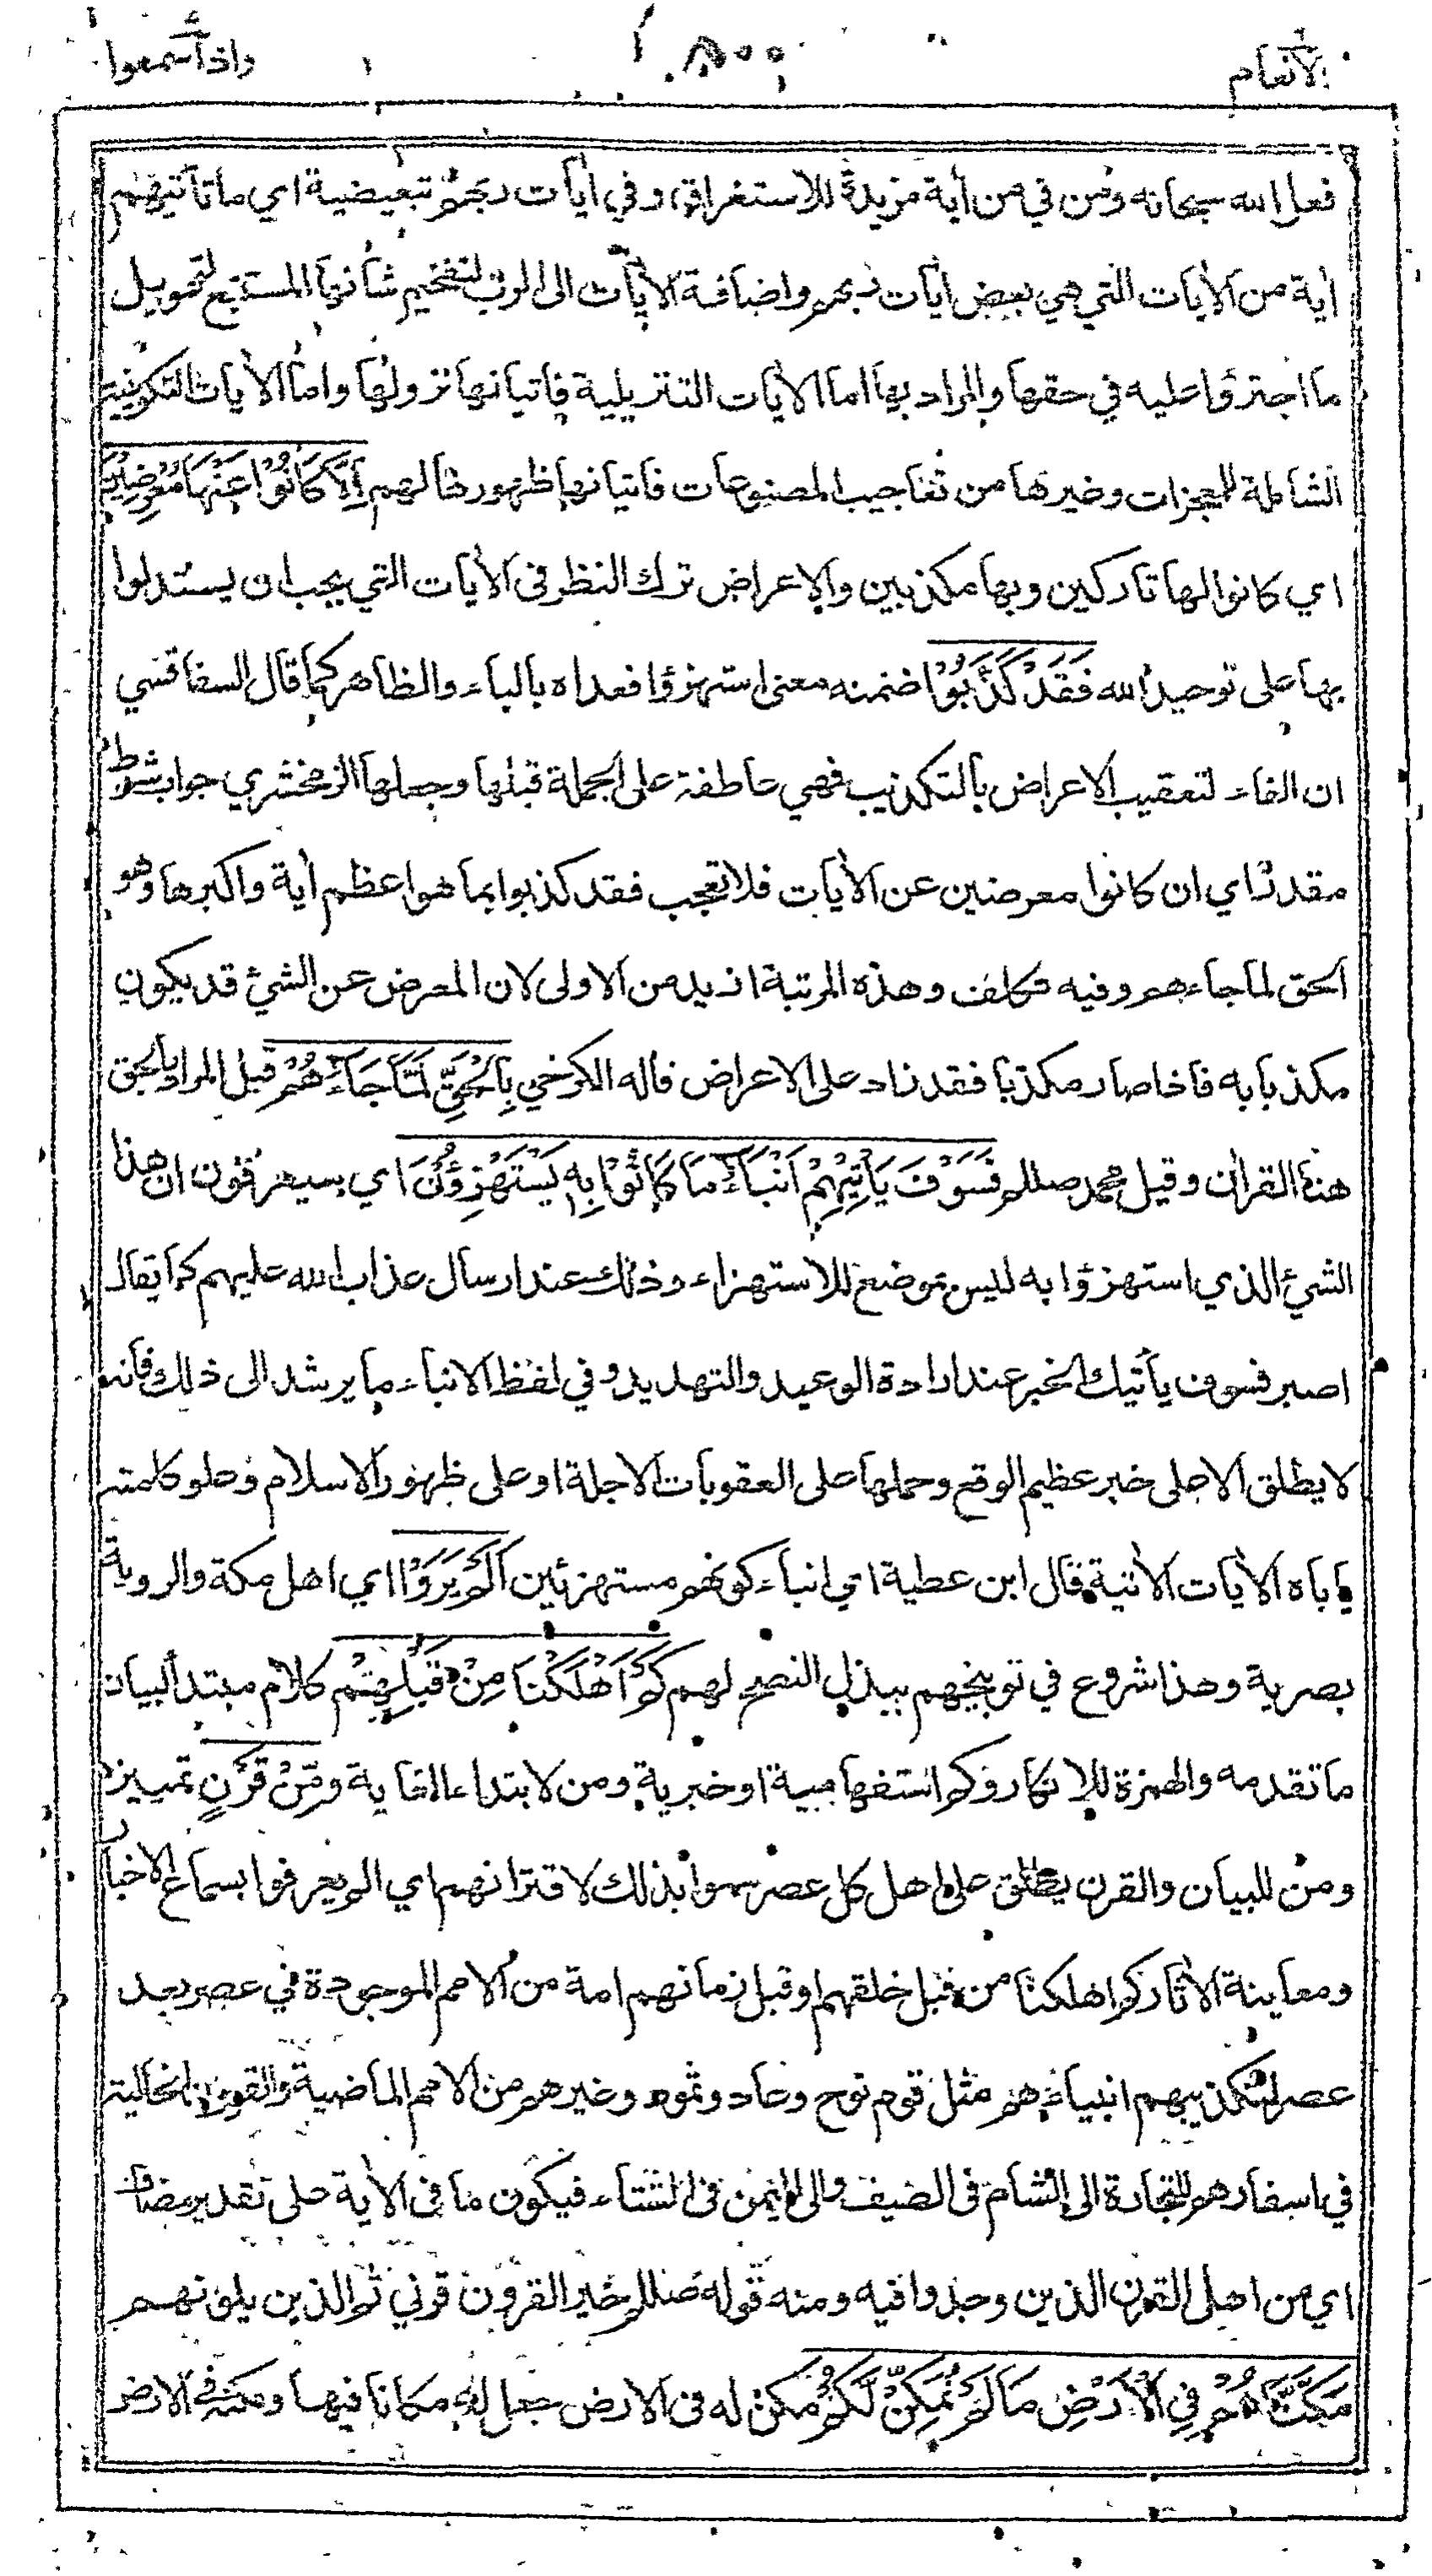 الانعام ٨٥٥ واذا سمعوا
فعل الله سبحانه ومن في من أية مزيدة للاستغراق وفي أيات ربهم تبعيضية اي ما تأتيهم
أية من الأيات التي هي بعض أيات ربهم واضافة الأيات الى الرب لتفخيم شأنها المستتبع لتهويل
ما اجترؤا عليه في حقها والمراد بها اما الأيات التنزيلية فاتيانها نزولها واما الأيات التكوينية
الشاملة للمعجزات وغيرها من تعاجيب المصنوعات فاتيانها ظهورها لهم اِلَّا كَانُوْا عَنْهَا مُعْرِضِيْنَ
اي كانوا لها تاركين وبها مكذبين والاعراض ترك النظر في الأيات التي يجب ان يستدلوا
بها على توحيد الله فَقَدْ كَذَّبُوْا ضمنه معنى استهزؤا فعداه بالباء والظاهر كما قال السفاقسي
ان الفاء لتعقيب الاعراض بالتكذيب فهي عاطفة على الجملة قبلها وجعلها الزمخشري جواب شرط
مقدر اي ان كانوا معرضين عن الأيات فلا تعجب فقد كذبوا بما هو اعظم أية واكبرها وهو
الحق لما جاءهم وفيه تكلف وهذه المرتبة ازيد من الاولى لان المعرض عن الشيء قد يكون
مكذبا به فاذا صار مكذبا فقد زاد على الاعراض قاله الكرخي بِالْحَقِّ لَمَّا جَاءَهُمْ قيل المراد بالحق
هنا القرأن وقيل محمد صللم فَسَوْفَ يَأْتِيْهِمْ اَنْبَاءُ مَا كَانُوْا بِهِ يَسْتَهْزِؤُنَ اي سيعرفون ان هذا
الشيء الذي استهزؤا به ليس بموضع للاستهزاء وذلك عند ارسال عذاب الله عليهم كما يقال
اصبر فسوف يأتيك الخبر عند ارادة الوعيد والتهديد وفي لفظ الانباء ما يرشد الى ذلك فانه
لا يطلق الا على خبر عظيم الوقع وحملها على العقوبات الاجلة او على ظهور الاسلام وعلو كلمته
ياباه الأيات الأتية قال ابن عطية اي انباء كونهم مستهزئين اَلَمْ يَرَوْا اي اهل مكة والروية
بصرية وهذا شروع في توبيخهم ببذل النصح لهم كَمْ اَهْلَكْنَا مِنْ قَبْلِهِمْ كلام مبتدأ لبيان
ما تقدمه والهمزة للانكار وكم استفهامية او خبرية ومن لابتداء الغاية ومِّنْ قَرْنٍ تمييز
ومن للبيان والقرن يطلق على اهل كل عصر سموا بذلك لاقترانهم اي الم يعرفوا بسماع الاخبار
ومعاينة الأثار كم اهلكنا من قبل خلقهم او قبل زمانهم امة من الامم الموجودة في عصر بعد
عصر لتكذيبهم انبياءهم مثل قوم نوح وعاد وثمود وغيرهم من الامم الماضية والقرون الخالية
في اسفارهم للتجارة الى الشام في الصيف والى اليمن في الشتاء فيكون ما في الأية على تقدير مضاف
اي من اهل القرن الذين وجدوا فيه ومنه قوله صللم خير القرون قرني ثم الذين يلونهم
مَكَّنَّاهُمْ فِي الْاَرْضِ مَا لَمْ نُمَكِّنْ لَّكُمْ مكن له في الارض جعل له مكانا فيها ومكنه في الارض